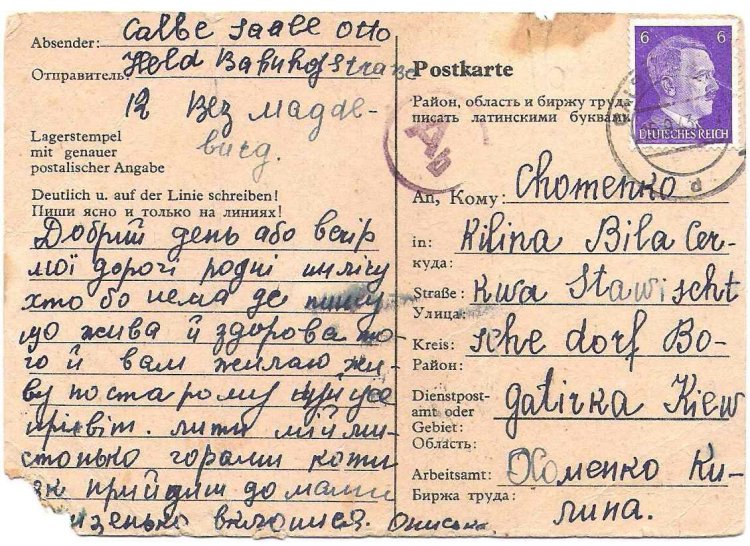 Absender: Calbe Saale Otto
Отправитель: Held Bahnhofstraße
12 Bez Magde-
burg.
Lagerstempel
mit genauer
postalischer Angabe
Deutlich u. auf der Linie schreiben!
Пиши ясно и только на линиях!
Добрий день або вечір
мої дорогі родні
хто бо нема де пишу
що жива й здорова то-
го й вам жилаю жи-
ву по старому
привіт. лити мій ли-
стонько горами коти
як прийдиш до мами
вклонися.Описька.
Postkarte
Район, область и биржу труда
писать латинскими буквами
An, Кому: Chomenko
in: Kilina Bila Cer-
куда:
Straße: kwa Stawischt
Улица:
Kreis: sche dorf Bo-
Район:
Dienstpost-
amt oder
Gebiet: gatirka Kiew
Область:
Arbeitsamt: Хоменко Ки-
Биржа труда: лина.
6 6
DEUTSCHES REICH
Ab